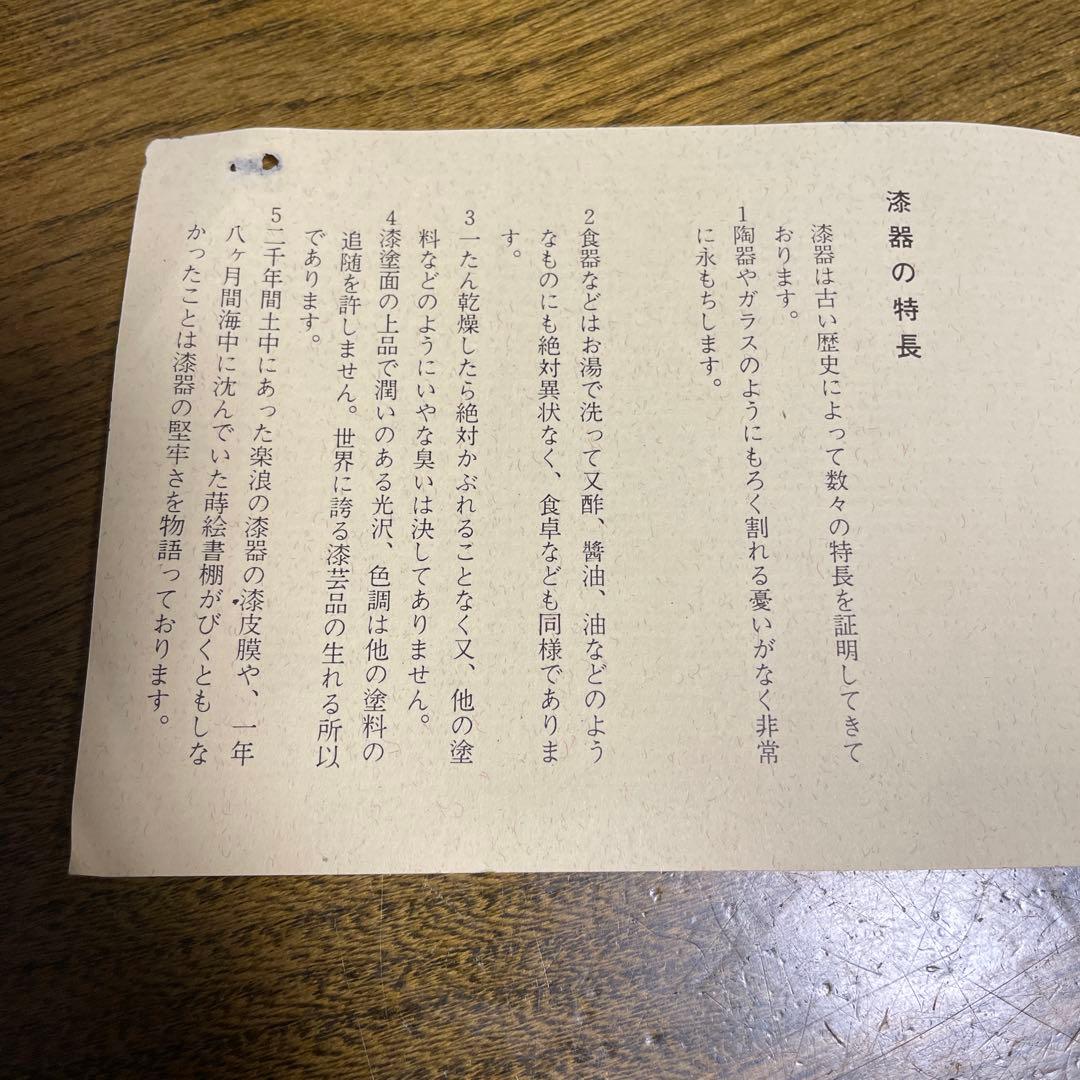 漆器の特長
漆器は古い歴史によって数々の特長を証明してきて
おります。
1陶器やガラスのようにもろく割れる憂いがなく非常
に永もちします。
2食器などはお湯で洗って又酢、醬油、油などのよう
なものにも絶対異状なく、食卓なども同様でありま
す。
3一たん乾燥したら絶対かぶれることなく又、他の塗
料などのようにいやな臭いは決してありません。
4漆塗面の上品で潤いのある光沢、色調は他の塗料の
追随を許しません。世界に誇る漆芸品の生れる所以
であります。
5二千年間土中にあった楽浪の漆器の漆皮膜や、一年
八ヶ月間海中に沈んでいた蒔絵書棚がびくともしな
かったことは漆器の堅牢さを物語っております。